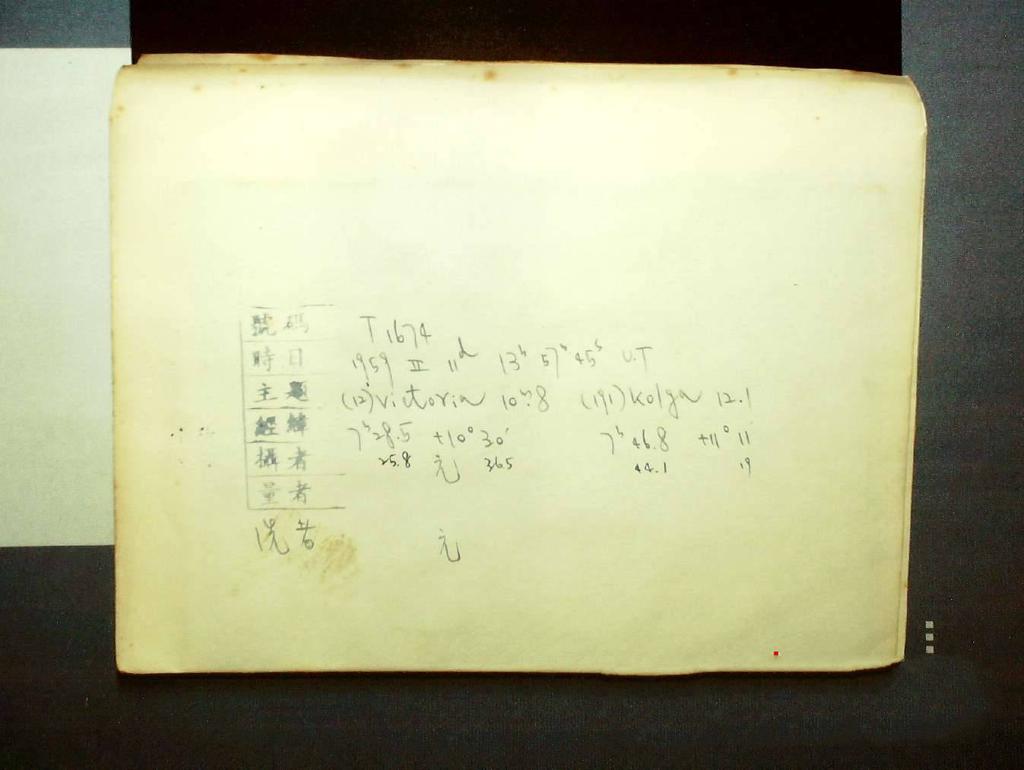 號碼 T 1674
時日 1959 II 11ᵈ 13ʰ 57ᵐ 45ˢ U.T
主題 (12)Victoria 10ᵐ.8 (191)Kolga 12.1
經緯 7ʰ28.5 +10°30′ 7ʰ46.8 +11°11
25.8 36.5 44.1 19
攝者 元
量者
洗者 元